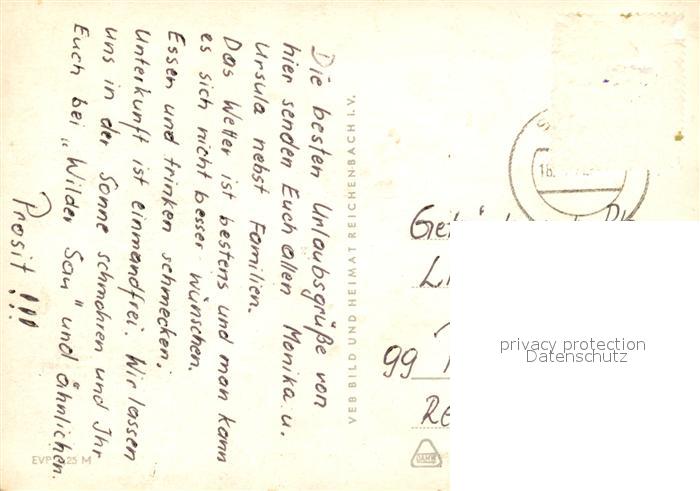 Die besten Urlaubsgrüße von
hier senden Euch allen Monika u.
Ursula nebst Familien.
Das Wetter ist bestens und man kann
es sich nicht besser wünschen.
Essen und trinken schmecken.
Unterkunft ist einmandfrei. Wir lassen
uns in der Sonne schmohren und Ihr
Euch bei „Wilder Sau" und ähnlichen.
Prosit!!!
EVP 25 M
VEB BILD UND HEIMAT REICHENBACH I.V.
99
privacy protection
Datenschutz